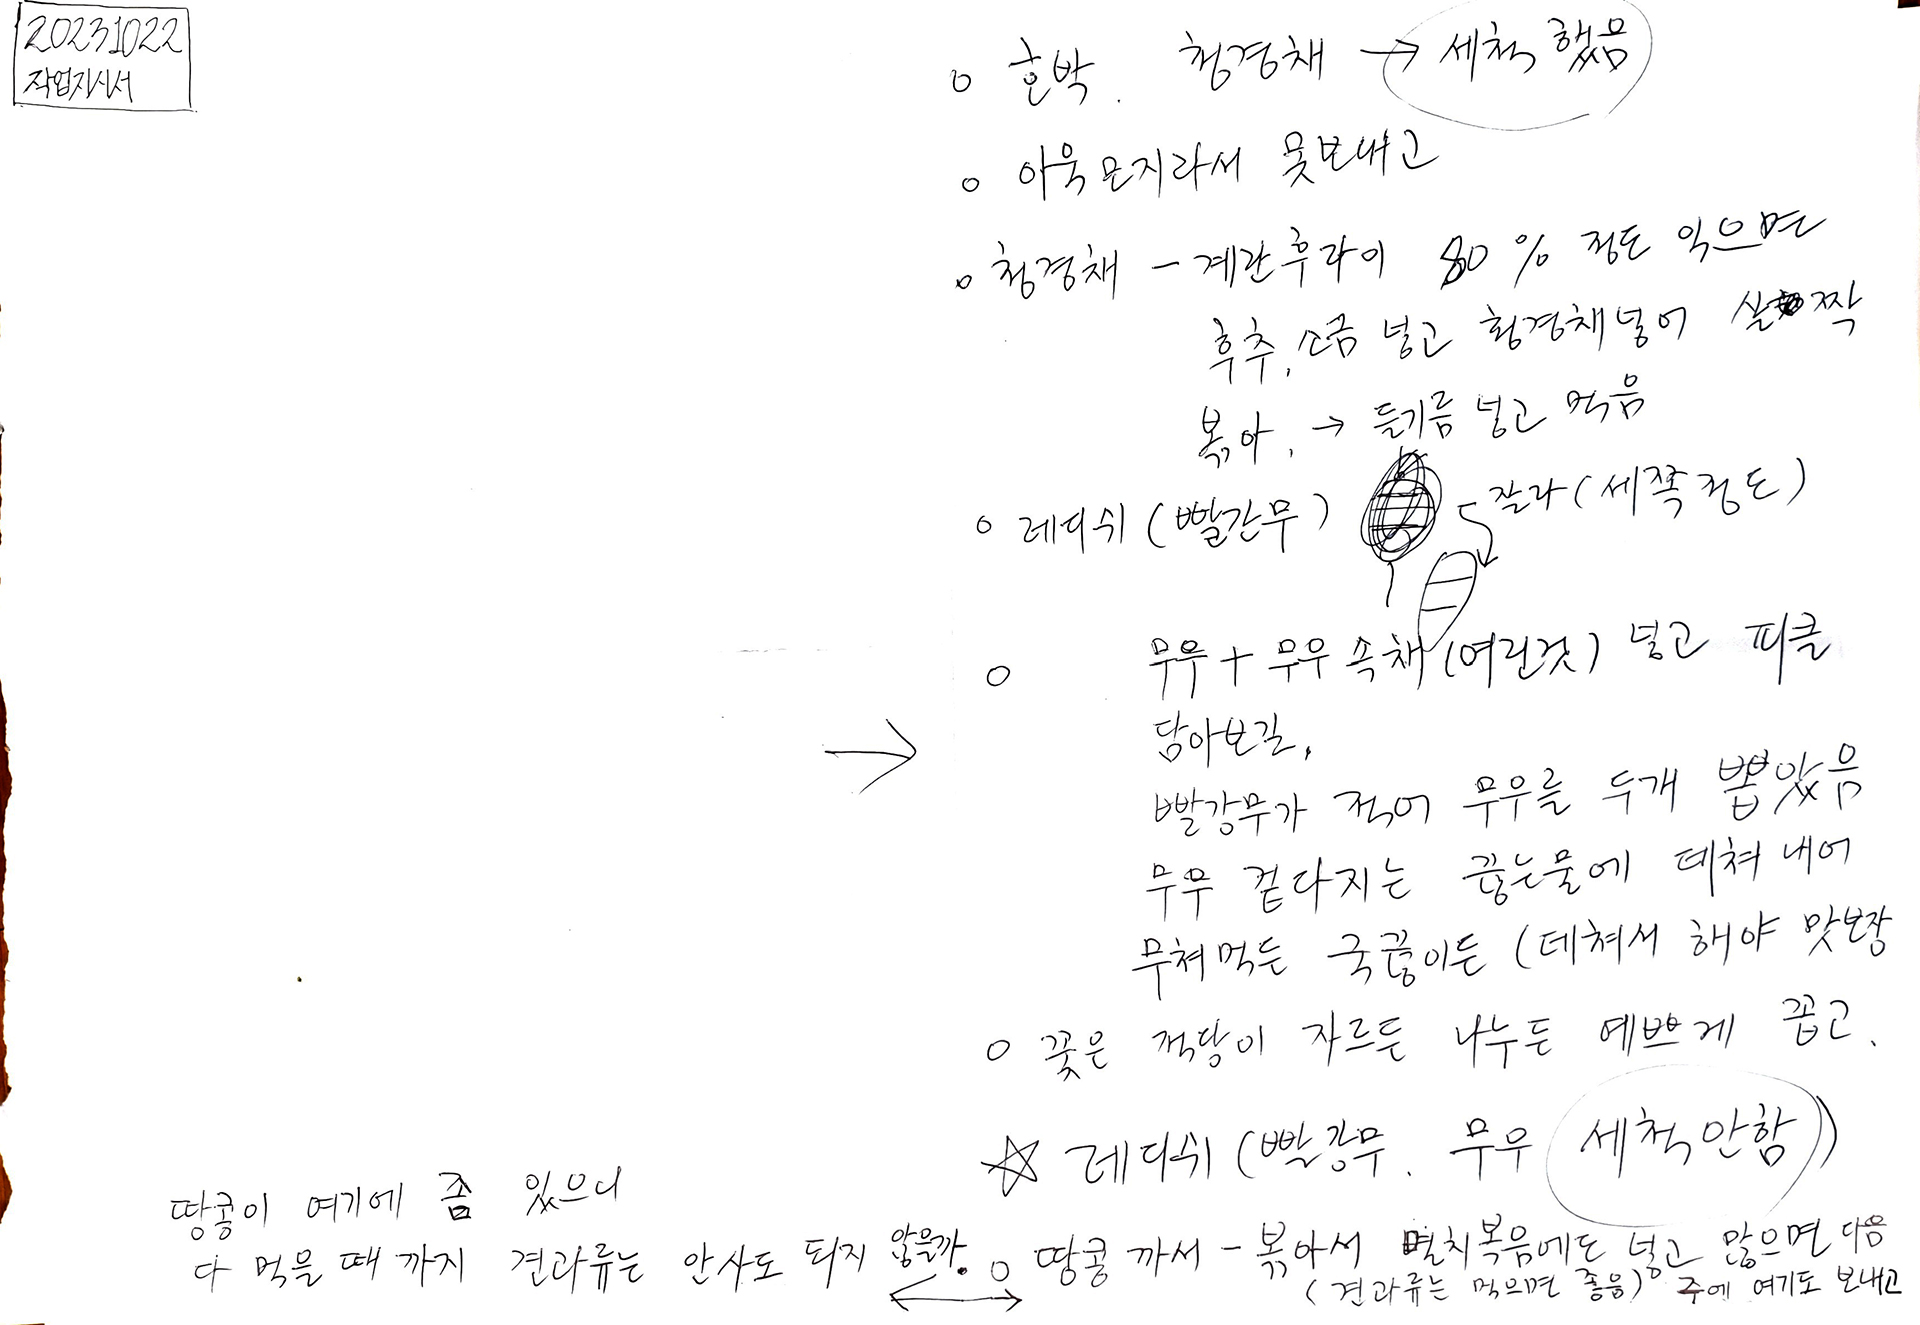 20231022
작업지시서
○ 호박. 청경채 → 세척 했음
○ 아욱 모지라서 못보내고
○ 청경채 - 계란후라이 80% 정도 익으면
후추, 소금 넣고 청경채넣어 살짝
볶아. → 들기름 넣고 먹음
○ 레디쉬 (빨간무) 잘라 (세쪽정도)
○ 무우 + 무우 속채 (여린것) 넣고 피클
담아보길,
→
빨강무가 적어 무우를 두개 뽑았음
무우 겉다지는 끓는물에 데쳐 내어
무쳐먹든 국끓이든 (데쳐서 해야 맛보장
○ 꽃은 적당이 자르든 나누든 예쁘게 꼽고.
☆ 레디쉬 (빨강무. 무우 세척안함)
땅콩이 여기에 좀 있으니
다 먹을 때 까지 견과류는 안사도 되지 않을까.
○ 땅콩 까서 - 볶아서 멸치볶음에도 넣고 많으면 다음
(견과류는 먹으면 좋음) 주에 여기도 보내고